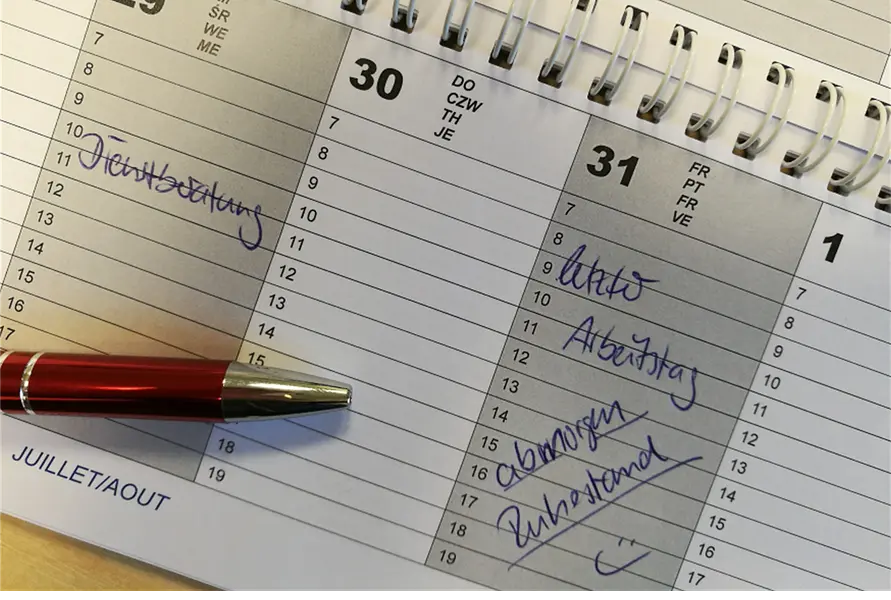 29
ŚR
WE
ME
7
8
9
10
11
12
13
14
15
16
17
Dienstberatung
30
DO
CZW
TH
JE
7
8
9
10
11
12
13
14
15
18
19
31
FR
PT
FR
VE
7
8
9
10
11
12
13
14
15
16
17
18
19
letzter
Arbeitstag
ab morgen
Ruhestand
1
7
8
9
10
11
12
13
14
15
16
17
JUILLET/AOUT